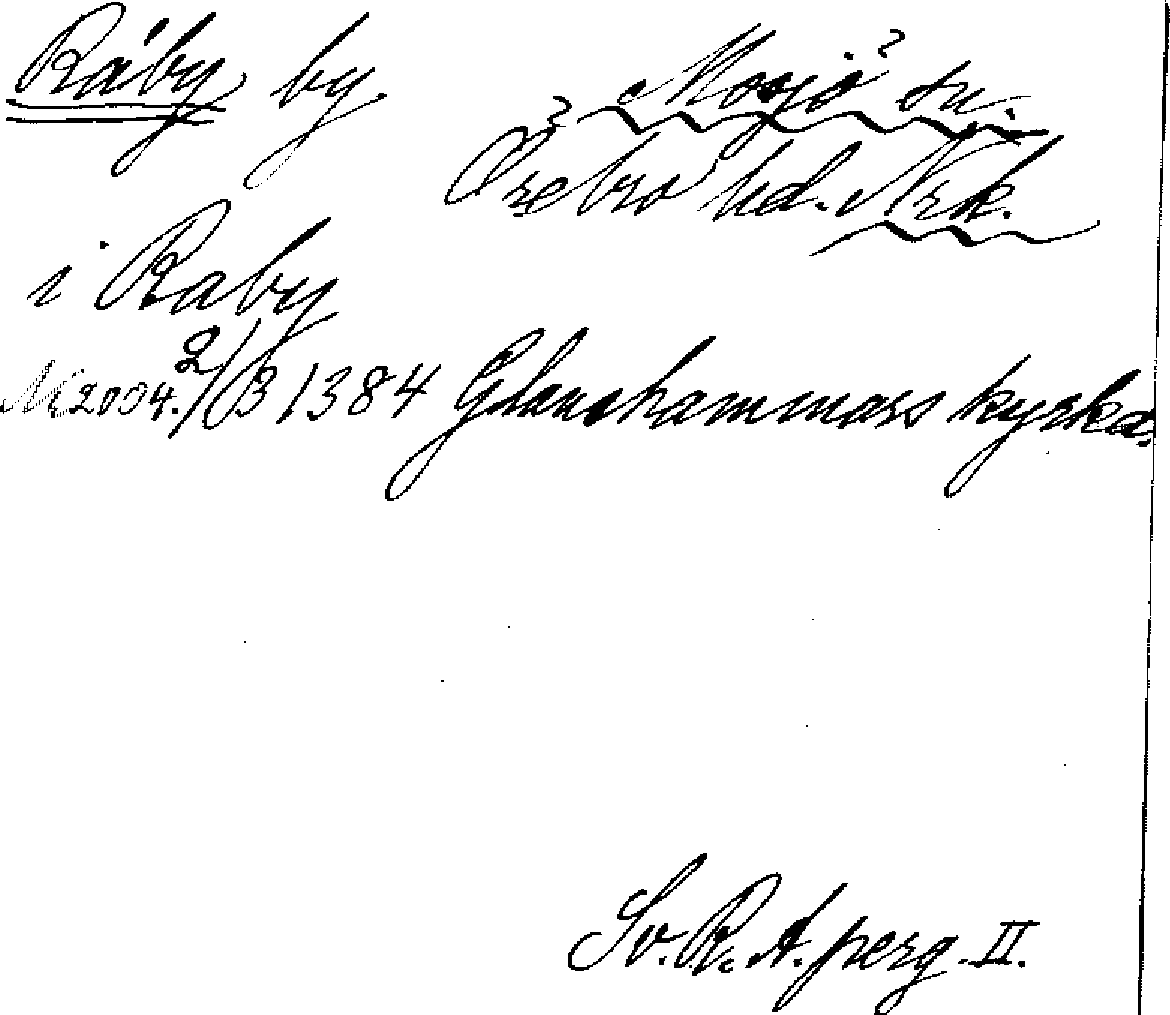 Råby by Mosjö sn.
Örebro hd. Nrk.
i Raby
N 2004. 2/3 1384 Glanshammars kyrka.
Sv. R. A. perg. II.